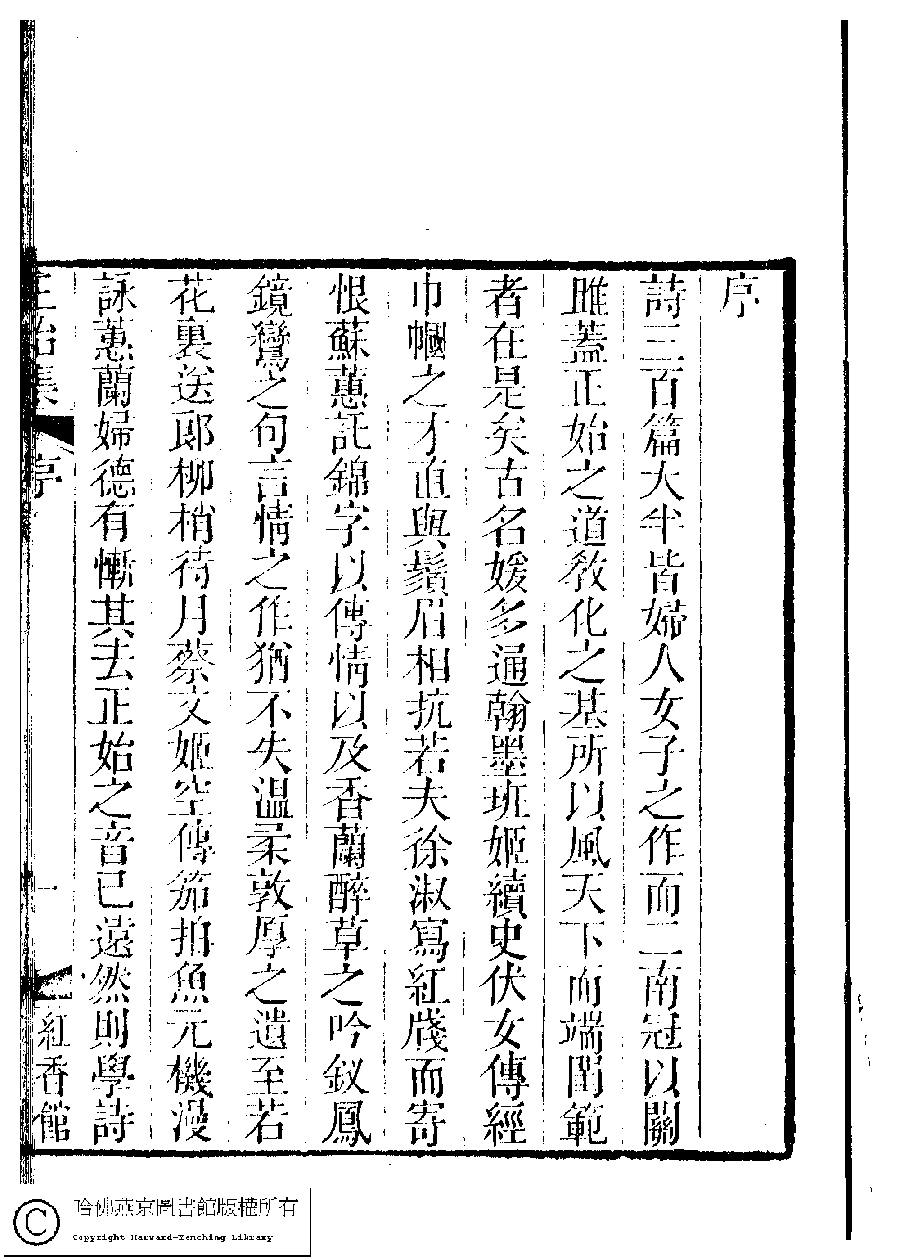 序
詩三百篇大半皆婦人女子之作而二南冠以關
雎蓋正始之道敎化之基所以風天下而端閫範
者在是矣古名媛多通翰墨班姬續史伏女傳經
巾幗之才直與鬚眉相抗若夫徐淑寫紅牋而寄
恨蘇蕙託錦字以傳情以及香蘭醉草之吟釵鳳
鏡鸞之句言情之作猶不失溫柔敦厚之遺至若
花裏送郞柳梢待月蔡文姬空傳笳拍魚元機漫
詠蕙蘭婦德有慚其去正始之音已遠然則學詩
正始集 序 一 紅香館
哈佛燕京圖書館版權所有
Copyright Harvard-Yenching Library